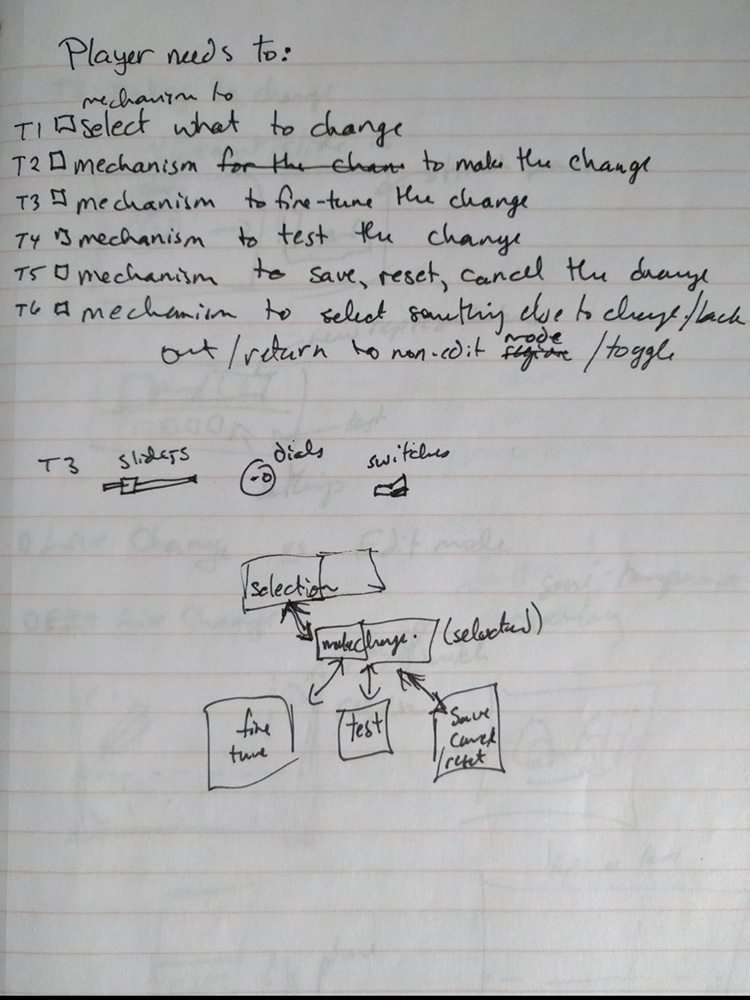 Player needs to:
mechanism to
T1 select what to change
T2 mechanism for the chan to make the change
T3 mechanism to fine-tune the change
T4 mechanism to test the change
T5 mechanism to save, reset, cancel the change
T6 mechanism to select something else to change/back
out/return to non-edit mode /toggle
T3 sliders dials switches
selection
make change. (selected)
fine
tune
test
save
cancel
reset